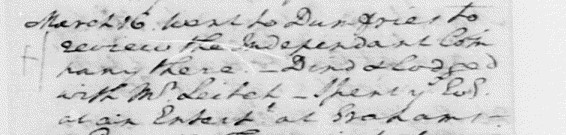 March 16. Went to Dumfries to
review the Independant Com
pany there. - Dind & Lodged
with Mr. Leitch - Spent ye Eve.
at an Entert. at Grahams -